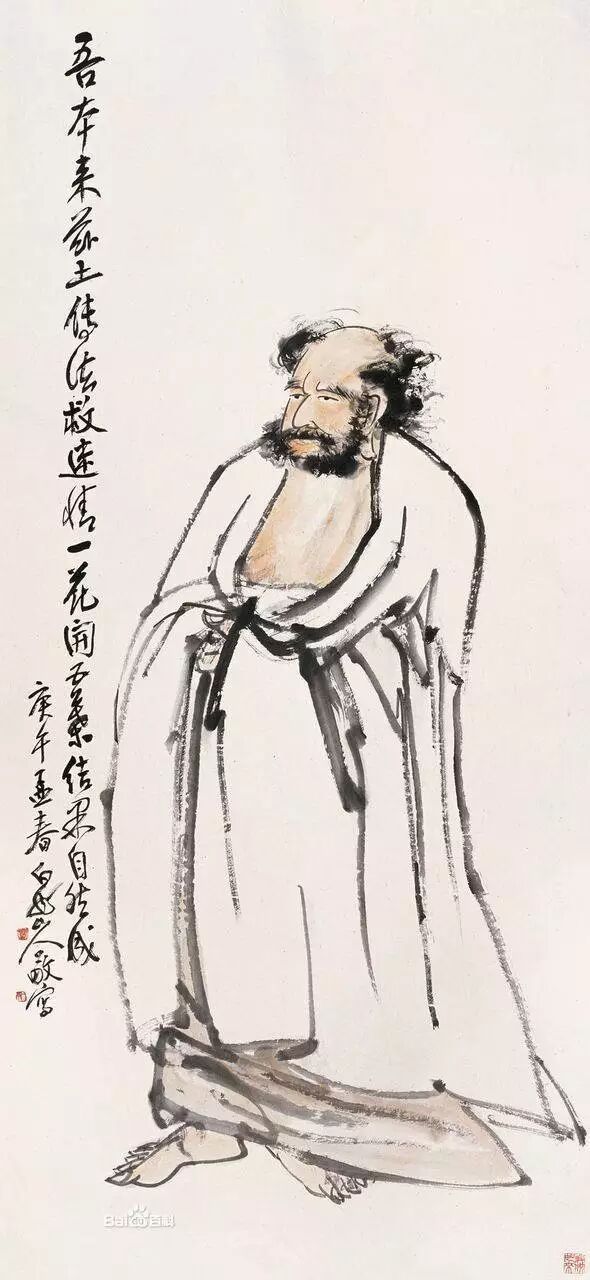 吾本来茲土傳法救迷情一花開五葉結果自然成
庚午孟春白龍山人敬寫
Bai du 百科